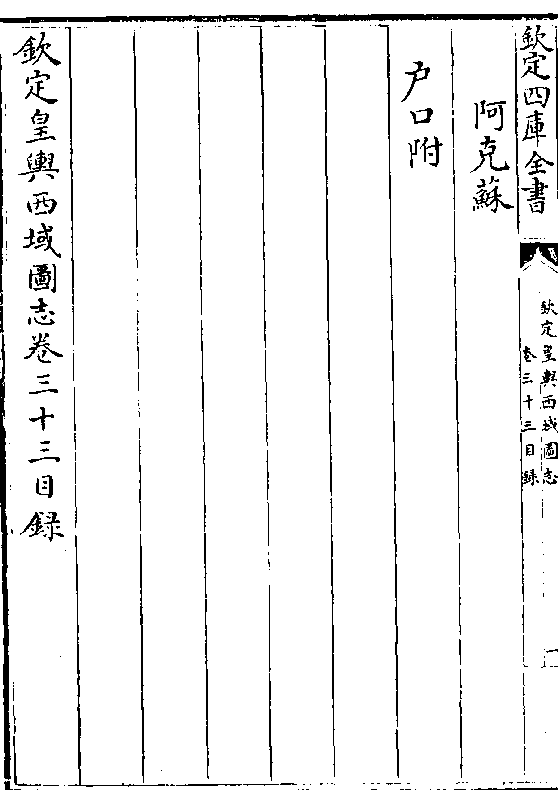 欽定四庫全書
欽定皇輿西域圖志
卷三十三目録
阿克蘇
户口附
欽定皇輿西域圖志卷三十三目録